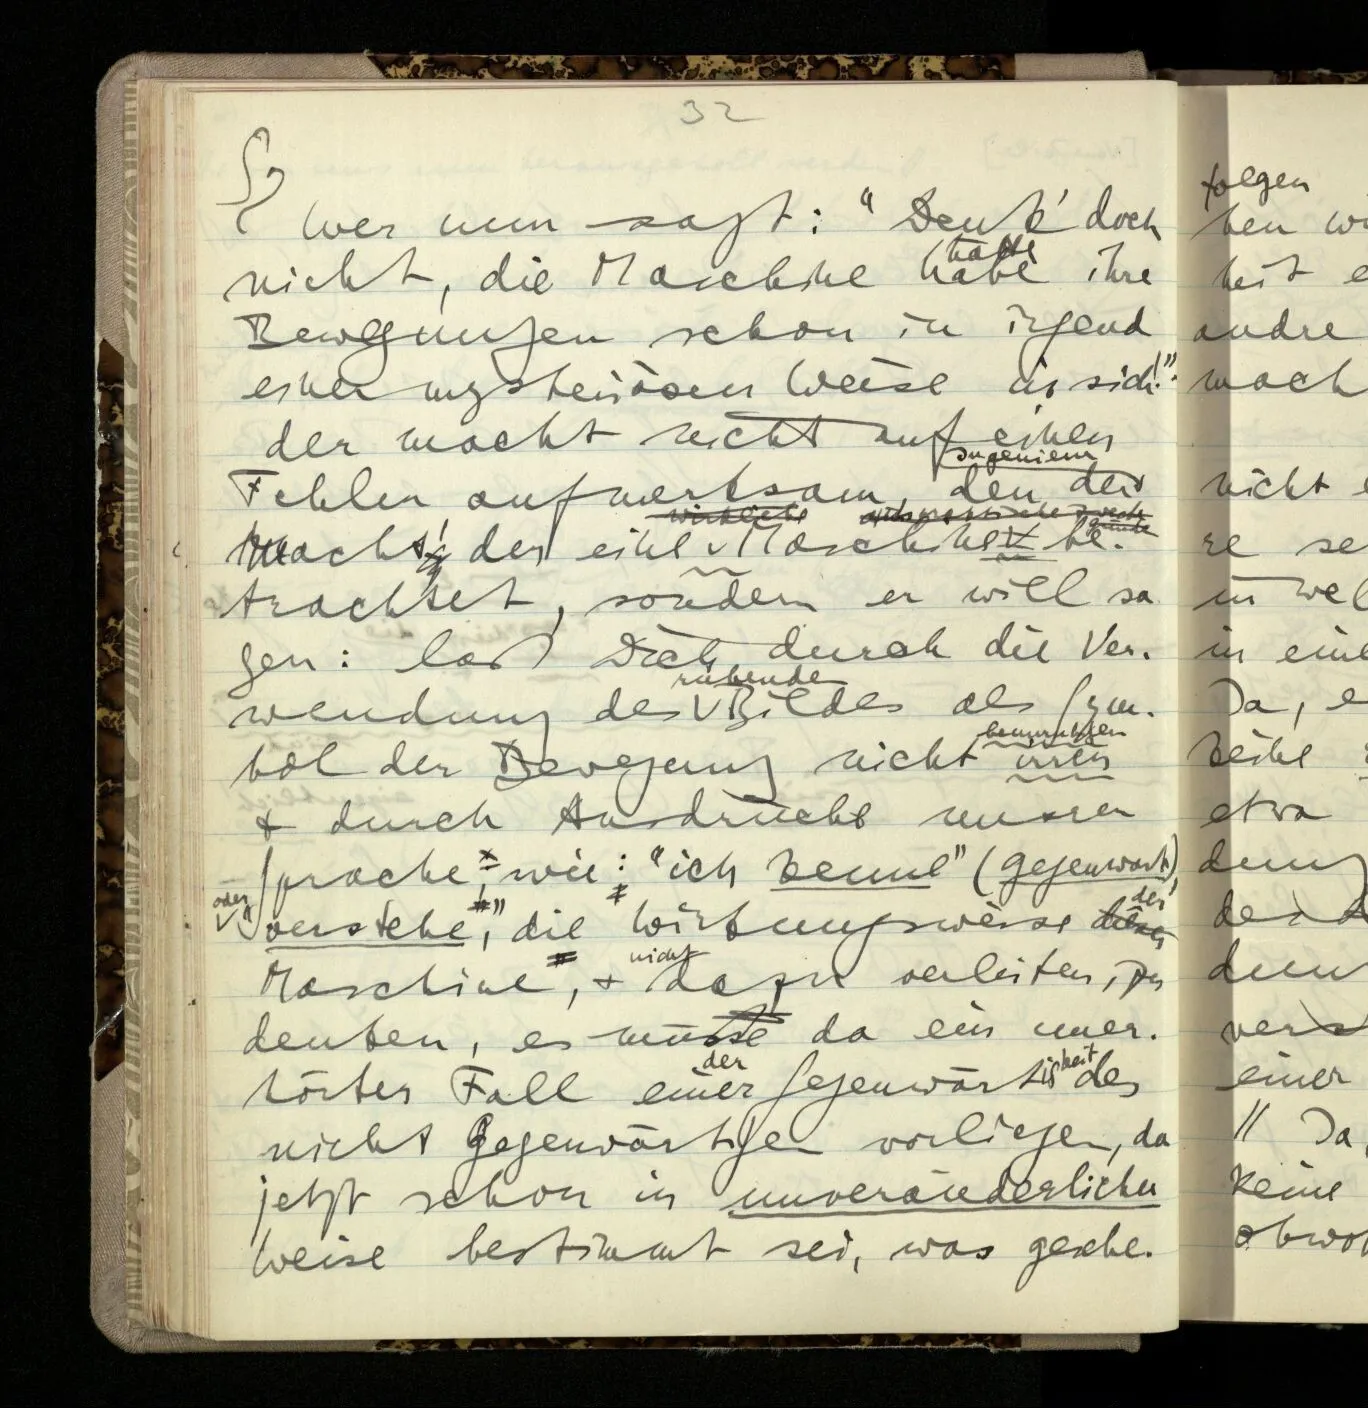 32
Wer nun sagt: "Denk' doch
nicht, die Maschine habe ihre
hätte
Bewegungen schon in irgend
einer mysteriösen Weise in sich!"
der macht nicht auf einen
Ingenieur
Fehler aufmerksam, den der
wirkliche
macht, der eine Maschine be-
trachtet, sondern er will sa
gen: laß Dich durch die Ver-
ruhenden
wendung des Bildes als Sym-
beunruhigen
bol der Bewegung nicht irren
& durch Ausdrücke unsrer
Sprache, wie: "ich kenne" (Gegenwart)
oder
"verstehe", die Wirkungsweise dieser
der
Maschine, & nicht dazu verleiten, zu
denken, es müsste da ein uner-
der heit
hörter Fall einer Gegenwärtig des
nicht Gegenwärtigen vorliegen, da
jetzt schon in unveränderlicher
Weise bestimmt sei, was gesche-
folgen
ben
heit
andre
mach
nicht
re se
in
in eine
Da, e
Reihe
etwa
dung
einer
// Ja,
keine